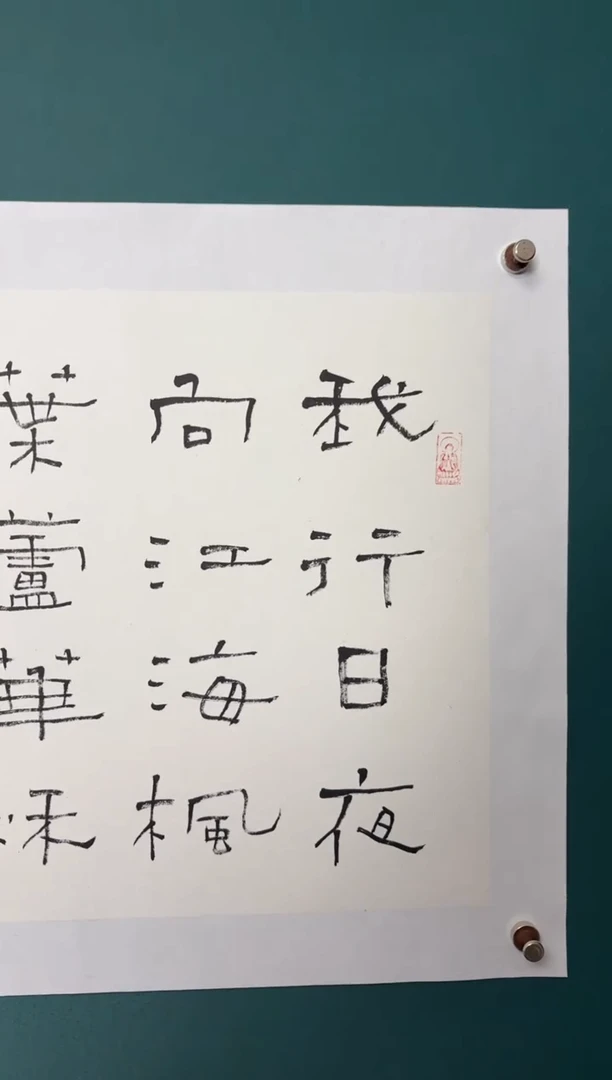 我行日夜
向江海楓
葉蘆華秌